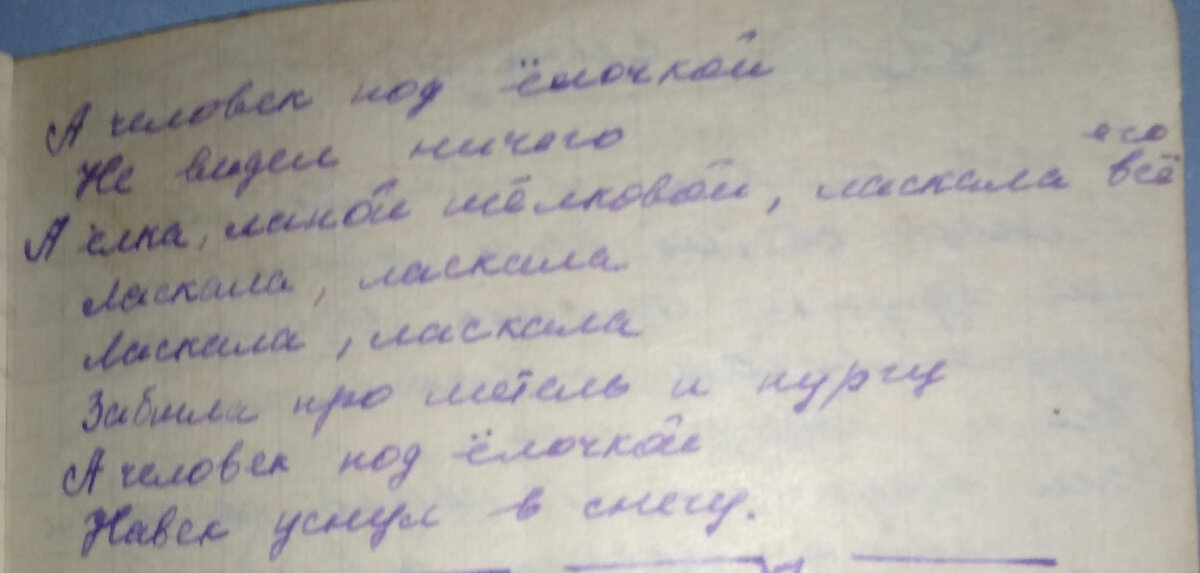 А человек под ёлочкой
Не видел ничего
А ёлка, лапой шёлковой, ласкала всё его
Ласкала, ласкала
Ласкала, ласкала
Забыла про метель и пургу
А человек под ёлочкой
Навек уснул в снегу.